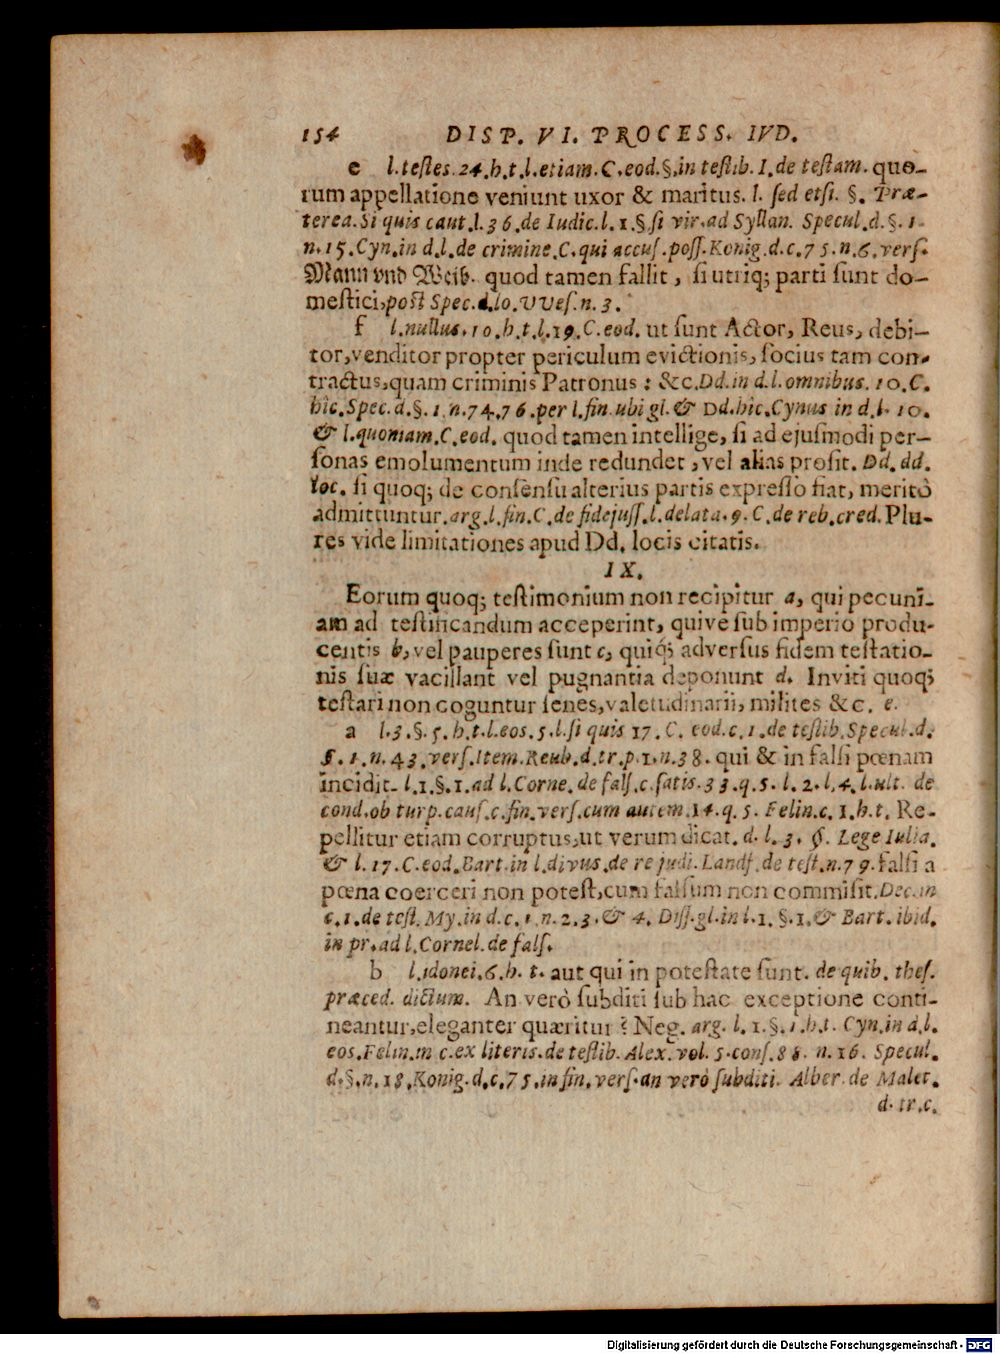 154 DISP. VI. PROCESS. IVD.
e l. testes. 24. h. t. l. etiam. C. eod. §. in testib. I. de testam. quo-
rum appellatione veniunt uxor & maritus. l. sed etsi. §. Præ-
terea. Si quis caut. l. 36. de Iudic. l. 1. §. si vir. ad Syllan. Specul. d. §. 1.
n. 15. Cyn. in d. l. de crimine. C. qui accus. poss. Konig. d. c. 75. n. 6. vers.
Mann vnd Weib. quod tamen fallit, si utriq; parti sunt do-
mestici, post Spec. d. lo. VVes. n. 3.
f l. nullus. 10. h. t. l. 19. C. eod. ut sunt Actor, Reus, debi-
tor, venditor propter periculum evictionis, socius tam con-
tractus, quam criminis Patronus : &c. Dd. in d. l. omnibus. 10. C.
hîc. Spec. d. §. 1. n. 74. 76. per l. fin. ubi gl. & Dd. hîc. Cynus in d. l. 10.
& l. quoniam. C. eod. quod tamen intellige, si ad ejusmodi per-
sonas emolumentum inde redundet, vel alias prosit. Dd. dd.
loc. si quoq; de consensu alterius partis expresso fiat, meritò
admittuntur. arg. l. fin. C. de fidejuss. l. delata. 9. C. de reb. cred. Plu-
res vide limitationes apud Dd. locis citatis.
IX.
Eorum quoq; testimonium non recipitur a, qui pecuni-
am ad testificandum acceperint, quive sub imperio produ-
centis b, vel pauperes sunt c, quiq́; adversus fidem testatio-
nis suæ vacillant vel pugnantia deponunt d. Inviti quoq;
testari non coguntur senes, valetudinarii, milites &c. e.
a l. 3. §. 5. h. t. l. eos. 5. l. si quis 17. C. eod. c. 1. de testib. Specul. d.
§. 1. n. 43. vers. Item. Reub. d. tr. p. 1. n. 38. qui & in falsi pœnam
incidit. l. 1. §. 1. ad l. Corne. de fals. c. satis. 33. q. 5. l. 2. l. 4. l. ult. de
cond. ob turp. caus. c. fin. vers. cum autem. 14. q. 5. Felin. c. 1. h. t. Re-
pellitur etiam corruptus, ut verum dicat. d. l. 3. §. Lege Iulia.
& l. 17. C. eod. Bart. in l. divus. de re judi. Landf. de test. n. 79. falsi a
pœna coerceri non potest, cum falsum non commisit. Dec. in
c. 1. de test. My. in d. c. 1. n. 2. 3. & 4. Diss. gl. in l. 1. §. 1. & Bart. ibid.
in pr. ad l. Cornel. de fals.
b l. idonei. 6. h. t. aut qui in potestate sunt. de quib. thes.
præced. dictum. An verò subditi sub hac exceptione conti-
neantur, eleganter quæritur? Neg. arg. l. 1. §. 1. h. t. Cyn. in d. l.
eos. Felin. in c. ex literis. de testib. Alex. vol. 5. cons. 88. n. 16. Specul.
d. §. n. 18. Konig. d. c. 75. in fin. vers. an verò subditi. Alber. de Malet.
d. tr. c.
Digitalisierung gefördert durch die Deutsche Forschungsgemeinschaft - DFG